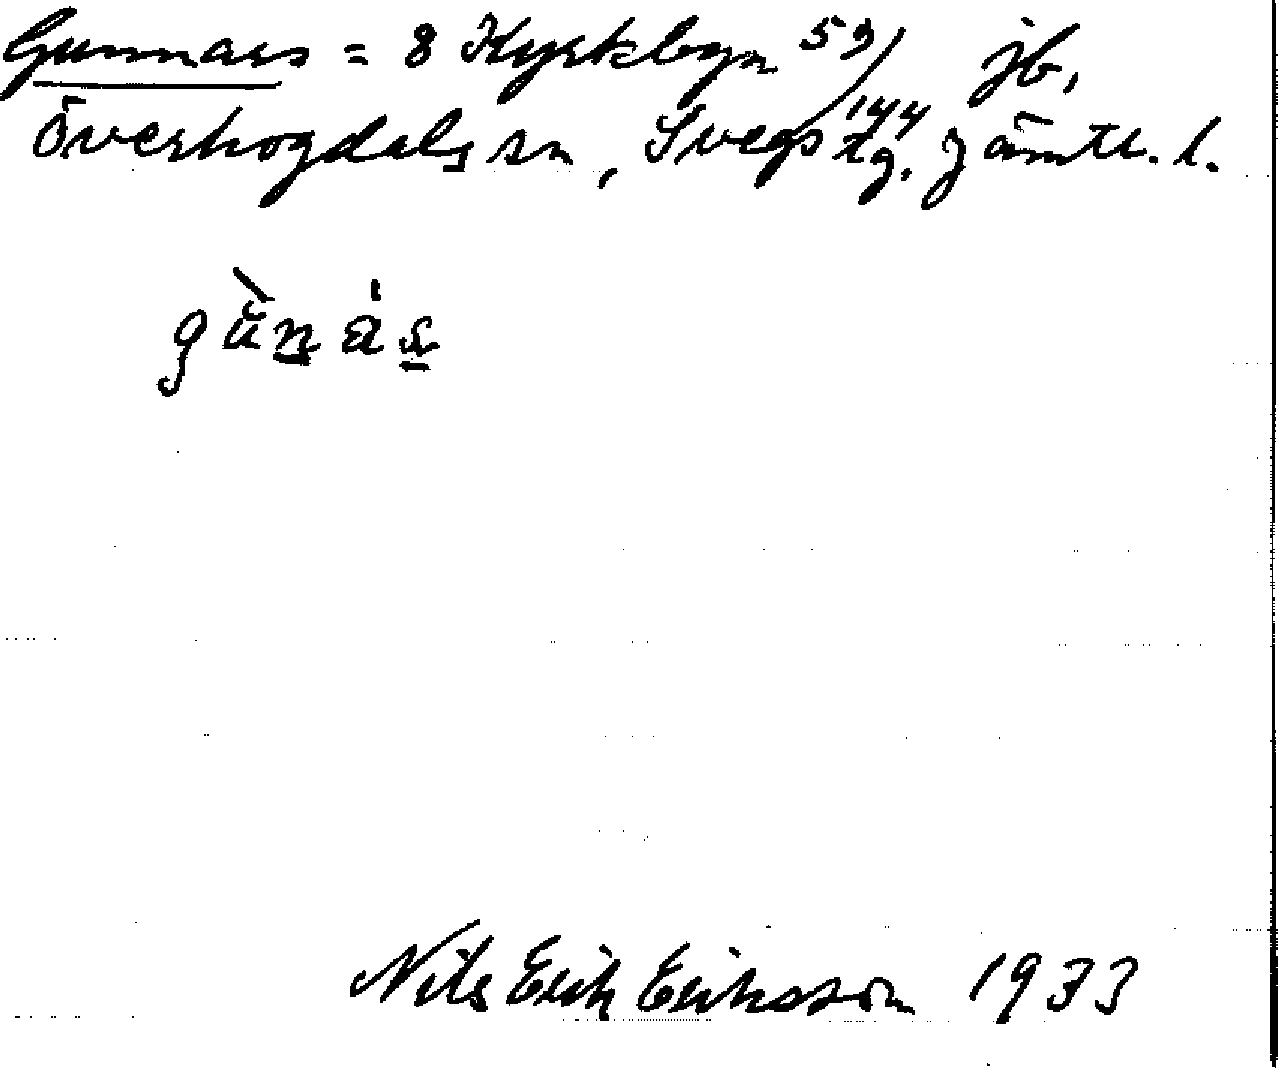 Gunnars = 8 Kyrkbyn 59/144 jb,
Överhogdals sn, Svegs tg. Jämtl. l.
Nils Erik Eriksson 1933